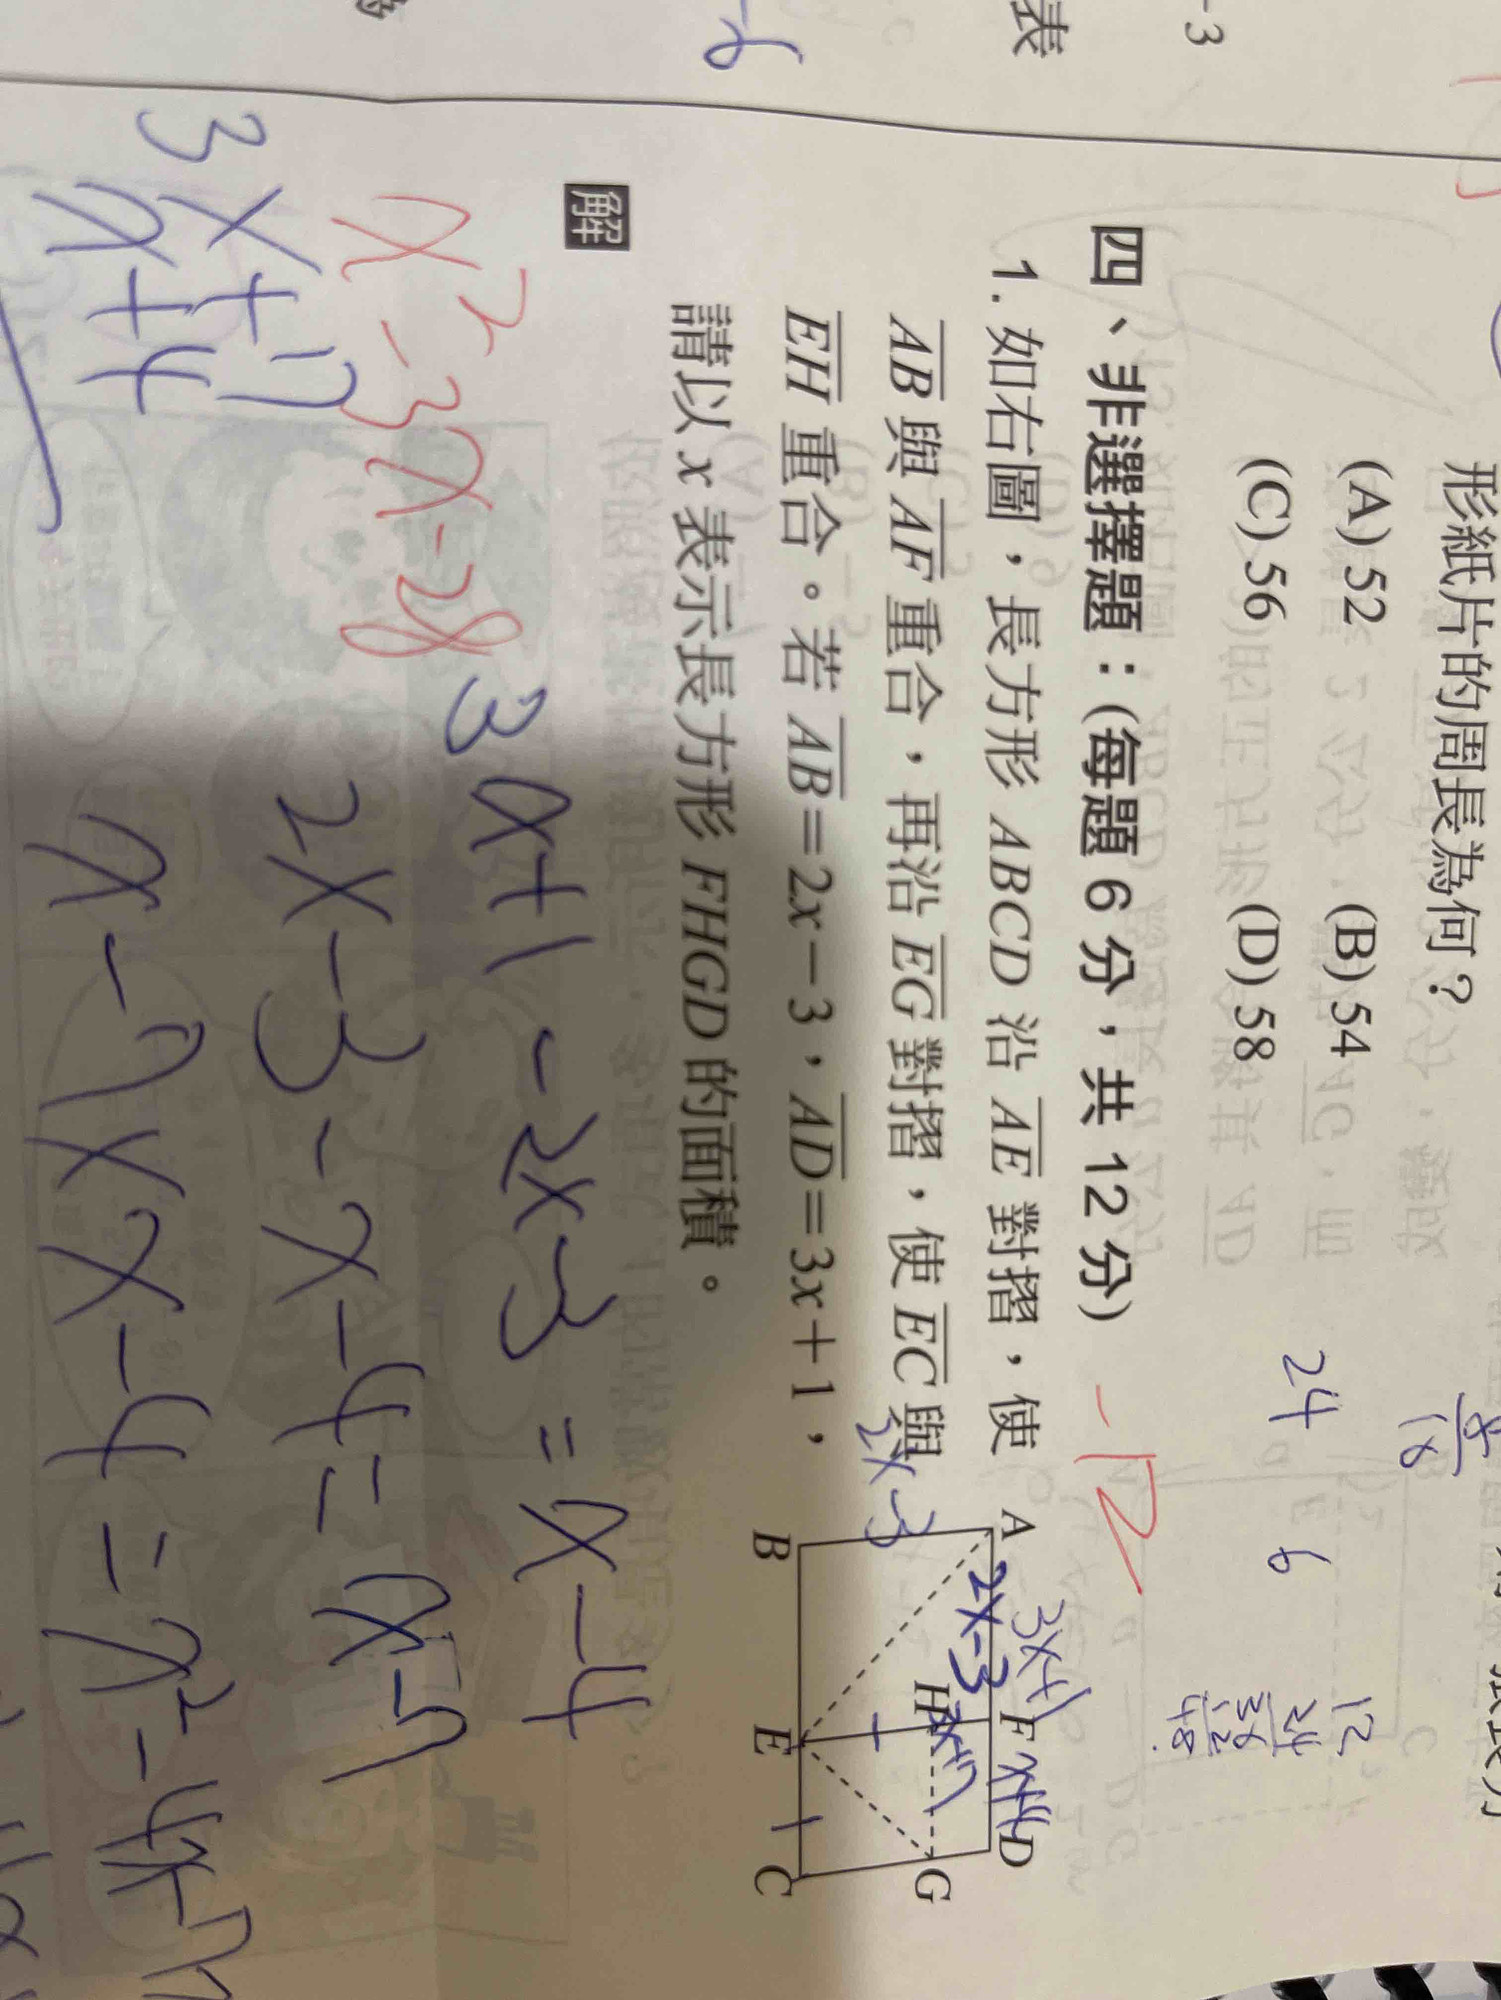 -3
表
-6
形紙片的周長為何?
(A) 52 (B) 54
(C) 56 (D) 58
24
6
12
24
36
12
48
18
四、非選擇題:(每題 6 分,共 12 分)
-12
1. 如右圖,長方形 ABCD 沿 AE 對摺,使
AB 與 AF 重合,再沿 EG 對摺,使 EC 與
EH 重合。若 AB=2x-3,AD=3x+1,
請以 x 表示長方形 FHGD 的面積。
3x+1
A F D
2x-3
2x-3
x+4
H G
B E C
解
x²-3x-28
3x+1-2x-3=x-4
2x-3-x-4=x-7
x-7×x-4=x²-4x-7
3x+7
x+4